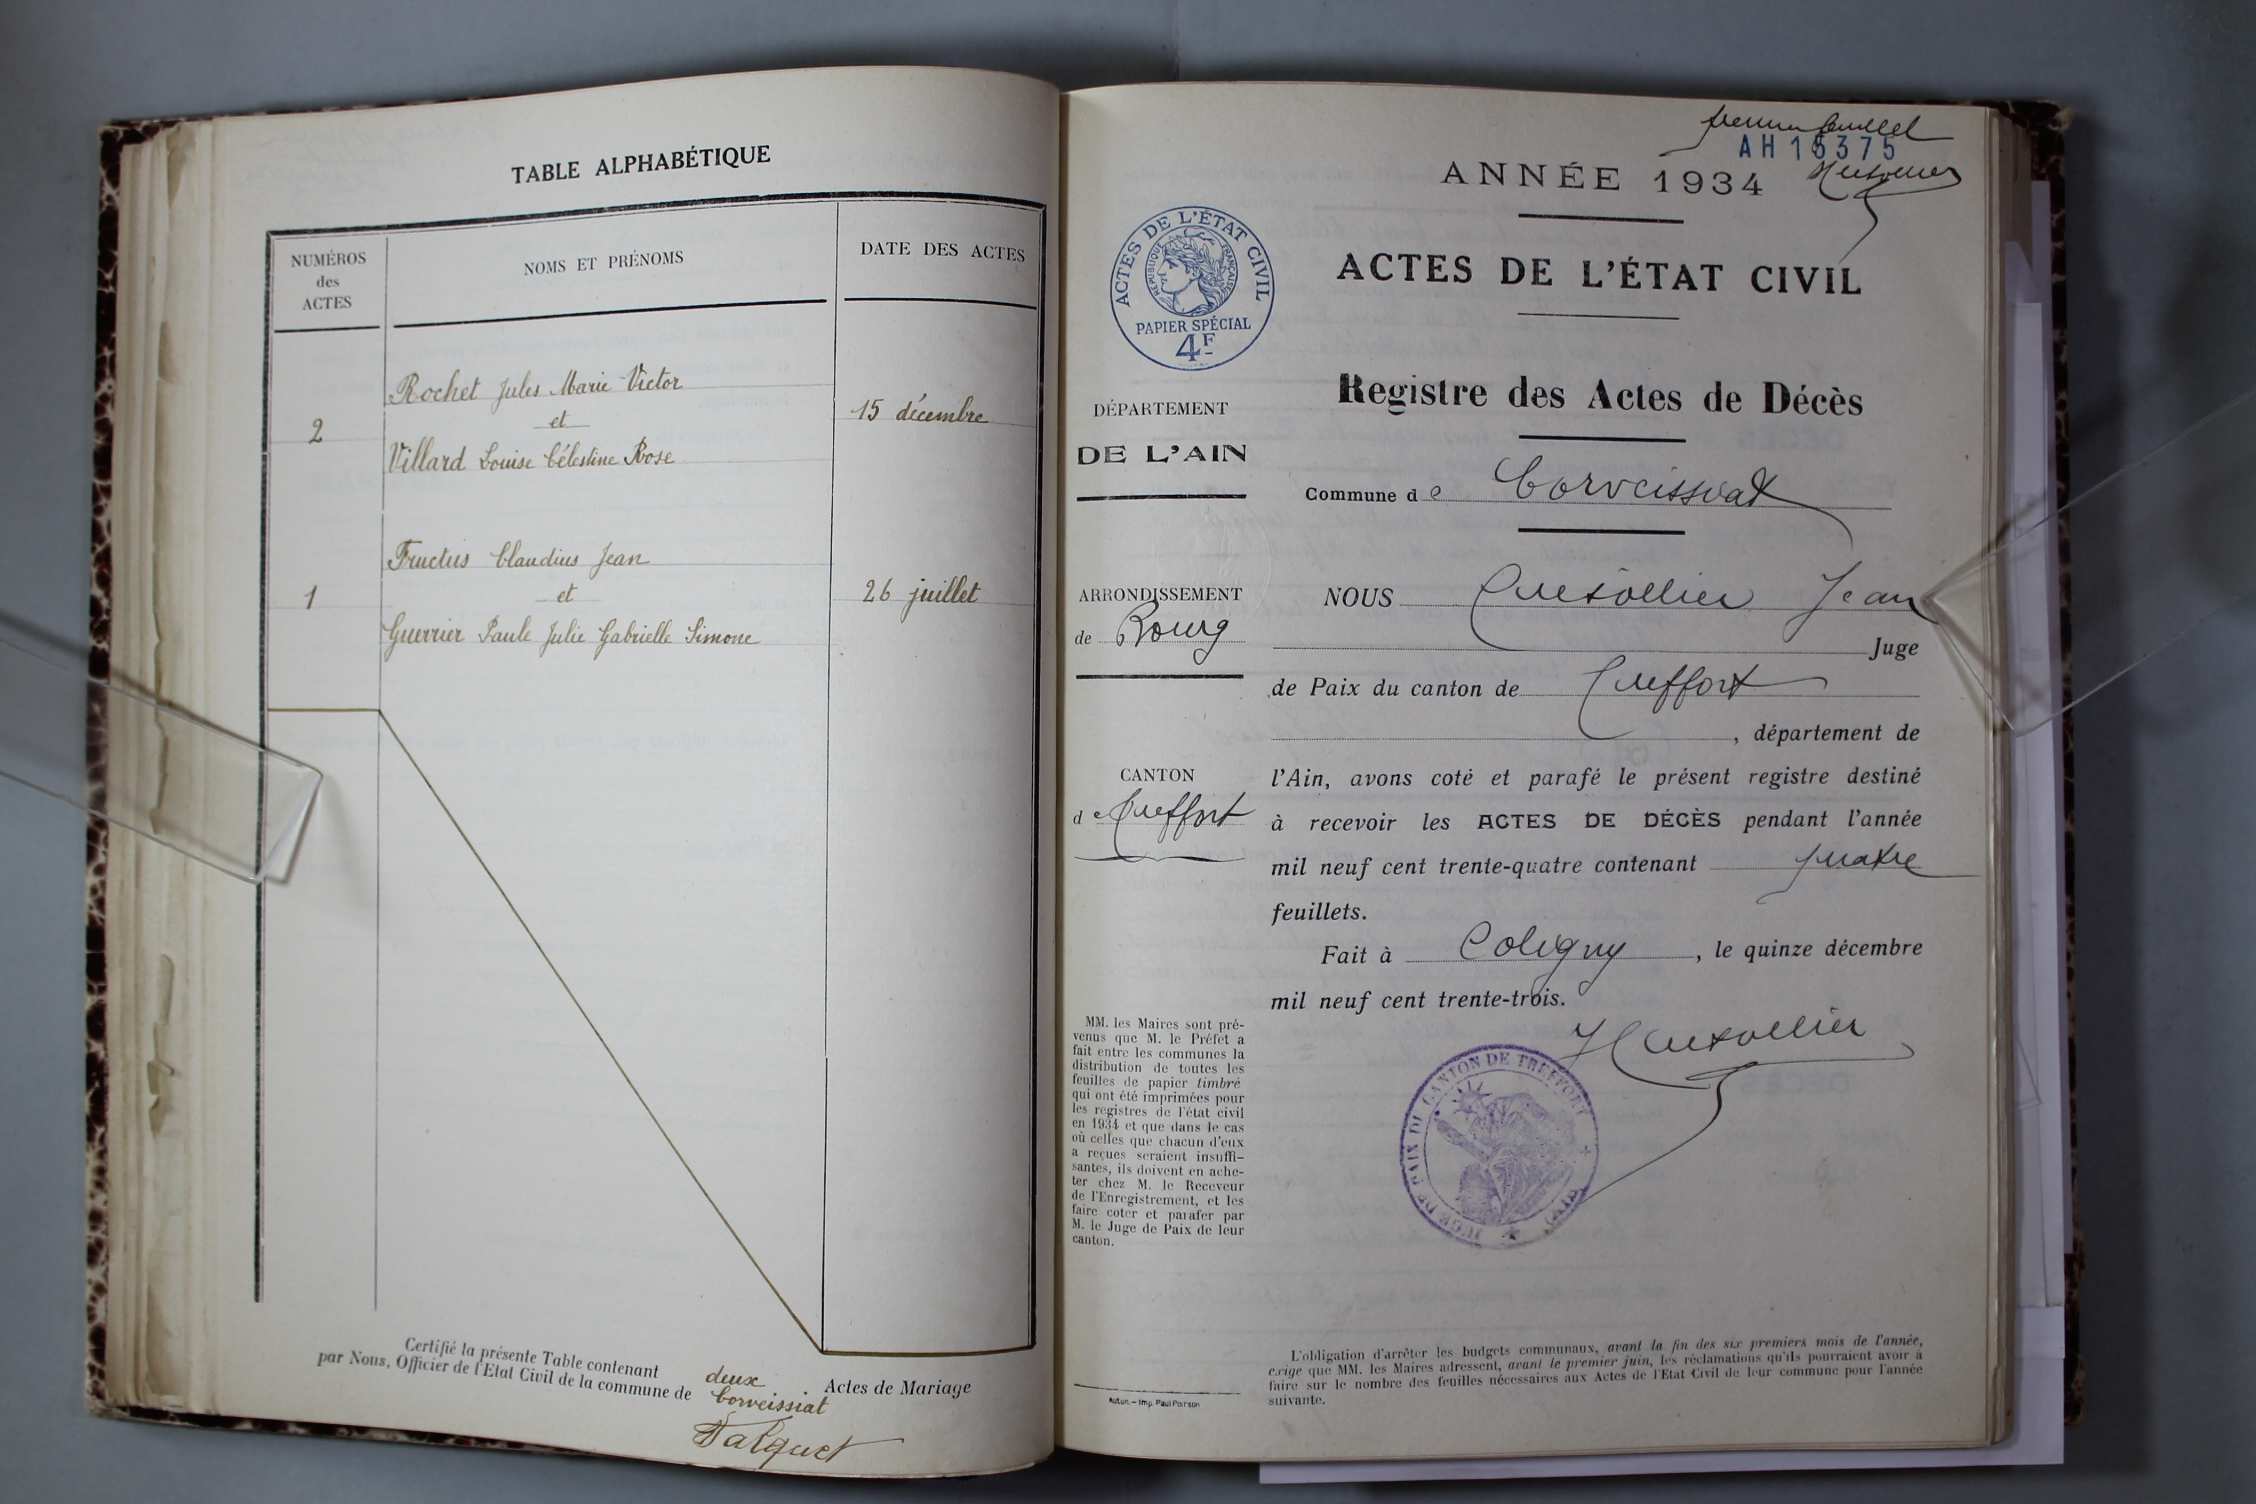 TABLE ALPHABÉTIQUE
NUMÉROS
des
ACTES
NOMS ET PRÉNOMS
DATE DES ACTES
2
Rochet Jules Marie Victor
et
Villard Louise Célestine Rose
15 décembre
1
Fructus Claudius Jean
et
Guerrier Paule Julie Gabrielle Simone
26 juillet
Certifié la présente Table contenant deux Actes de Mariage
par Nous, Officier de l'Etat Civil de la commune de Corveissiat
premier feuillet
AH 16375
ANNÉE 1934
ACTES DE L'ÉTAT CIVIL
RÉPUBLIQUE FRANÇAISE
PAPIER SPÉCIAL
4F
ACTES DE L'ÉTAT CIVIL
Registre des Actes de Décès
DÉPARTEMENT
DE L'AIN
Commune de Corveissiat
ARRONDISSEMENT
de Bourg
CANTON
de Treffort
NOUS Jean
Juge
de Paix du canton de Treffort
, département de
l'Ain, avons coté et parafé le présent registre destiné
à recevoir les ACTES DE DÉCÈS pendant l'année
mil neuf cent trente-quatre contenant quatre
feuillets.
Fait à Coligny, le quinze décembre
mil neuf cent trente-trois.
JUGE DE PAIX DU CANTON DE TREFFORT (AIN)
MM. les Maires sont pré-
venus que M. le Préfet a
fait entre les communes la
distribution de toutes les
feuilles de papier timbré
qui ont été imprimées pour
les registres de l'état civil
en 1934 et que dans le cas
où celles que chacun d'eux
a reçues seraient insuffi-
santes, ils doivent en ache-
ter chez M. le Receveur
de l'Enregistrement, et les
faire coter et parafer par
M. le Juge de Paix de leur
canton.
Autun. — Imp. Paul Poirson
L'obligation d'arrêter les budgets communaux, avant la fin des six premiers mois de l'année,
exige que MM. les Maires adressent, avant le premier juin, les réclamations qu'ils pourraient avoir à
faire sur le nombre des feuilles nécessaires aux Actes de l'Etat Civil de leur commune pour l'année
suivante.